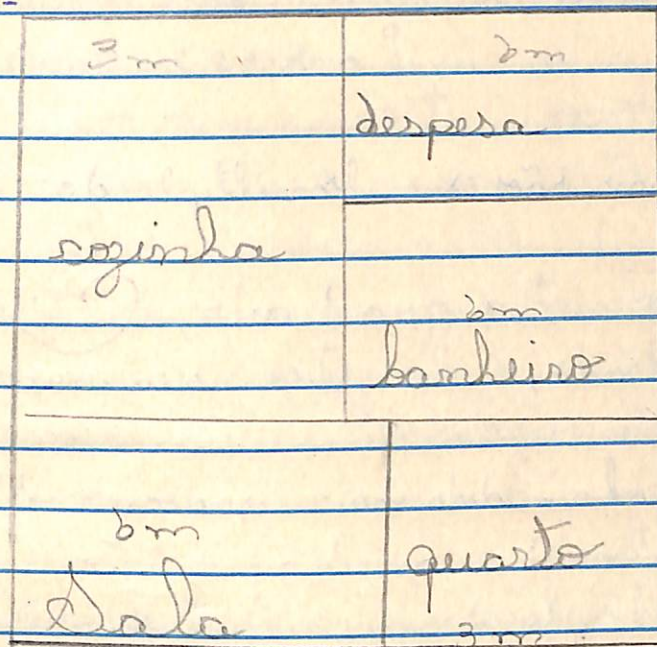 3 m
6 m
despesa
cozinha
6 m
banheiro
6 m
Sala
quarto
3 m